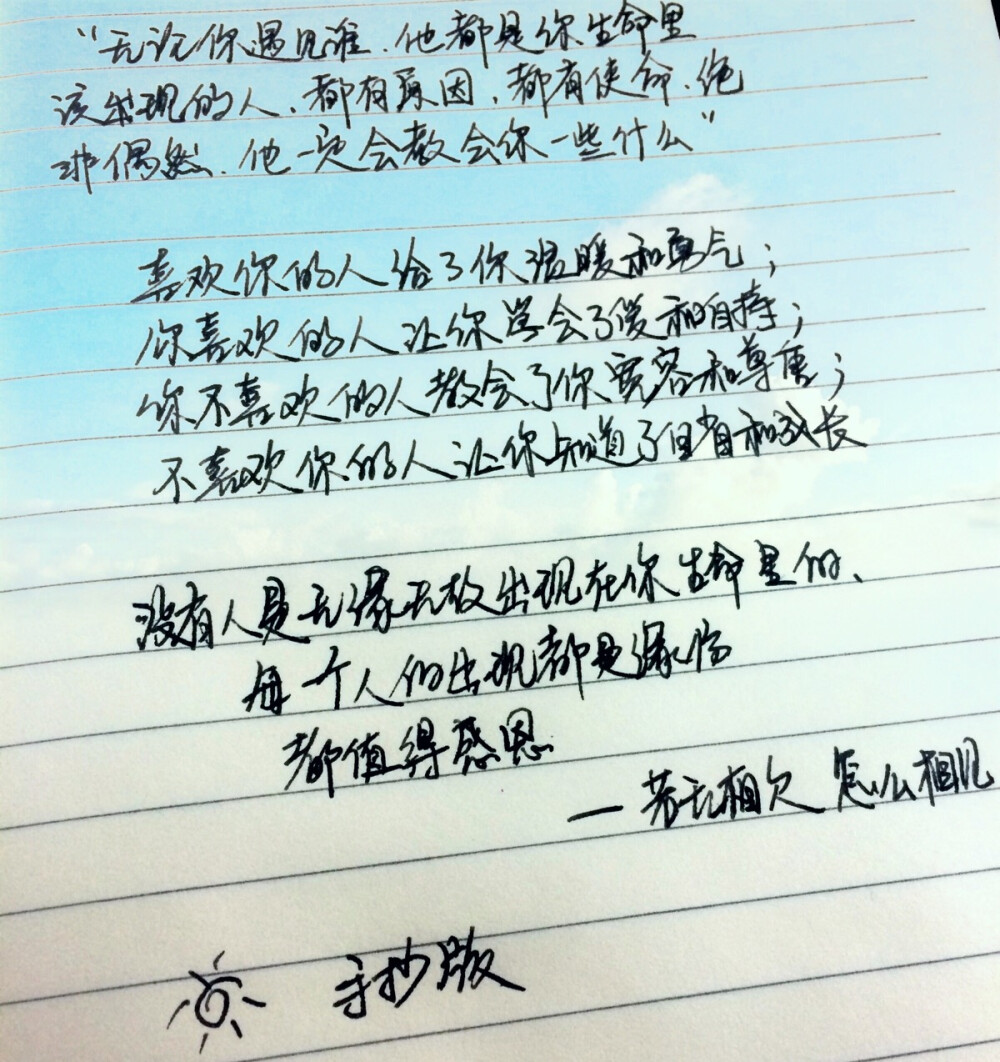 “无论你遇见谁、他都是你生命里
该出现的人、都有原因、都有使命、绝
非偶然、他一定会教会你一些什么”
喜欢你的人给了你温暖和勇气；
你喜欢的人让你学会了爱和自持；
你不喜欢的人教会了你宽容和尊重；
不喜欢你的人让你知道了自省和成长
没有人是无缘无故出现在你生命里的、
每一个人的出现都是缘份
都值得感恩
— 若无相欠 怎么相见
手抄版